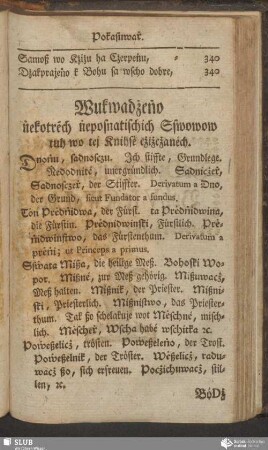 Pokasliwaŕ.
Samosz wo Kżiżu ha Czerpeńu, 340
Dżakprajeńo k Bohu sa wscho dobre, 340
Wukwadżeńo
ńekotréch ńeposnatischich Ssłwowow
tuh wo tej Knihse cżiżcżanéch.
Dnoṙu, sadnosczu. Ich stiffte, Grundlege.
Nedodnité, unergründlich. Sadniczeŕ,
Sadnosczeŕ, der Stiffter. Derivatum a Dno,
der Grund, sicut Fundator a fundus.
Ton Predńidwa, der Fürst. ta Prédńidwina,
die Fürstin. Prédnidwinski, Fürstlich. Pré-
ńidwinstwo, das Fürstenthum. Derivatum a
prenì; ut Princeps a primus.
Sswata Mischa, die heilige Meß. Bohoski Wo-
por. Mischné, zur Meß gehörig. Mischuwacz,
Meß halten. Mischnik, der Priester. Mischni-
ski, Priesterlich. Mischnistwo, das Priester-
thum. Tak żo schelakuje wot Méschné, misch-
lich. Méscheŕ, Wscha habé wschitka ꝛc.
Powetzelicz, trösten. Powetzeleńo, der Trost.
Powetzelnik, der Tröster. Wéselicz, radu-
wacz ßo, sich erfreuen. Poczichuwacz, stil-
len, ꝛc.
SLUB
Wir führen Wissen.